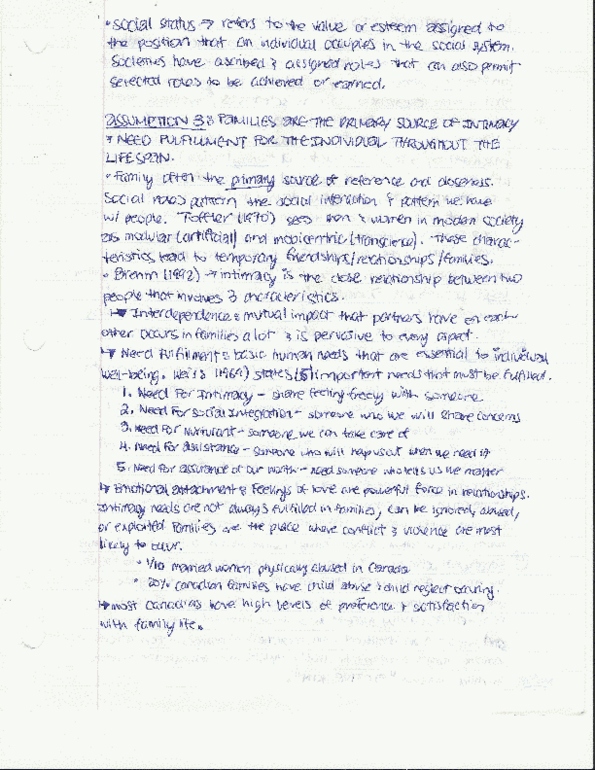 • Social status → refers to the value or esteem assigned to
the position that an individual occupies in the social system.
Societies have ascribed & assigned roles that can also permit
selected roles to be achieved or earned.
ASSUMPTION 3: FAMILIES ARE THE PRIMARY SOURCE OF INTIMACY
& NEED FULFILLMENT FOR THE INDIVIDUAL THROUGHOUT THE
LIFESPAN.
• Family often the primary source of reference and closeness.
Social roles pattern the social interaction & pattern we have
w/ people. Toffler (1970) sees men & women in modern society
as modular (artificial) and mobicentric (transcience). These charac-
teristics lead to temporary friendships/relationships/families.
• Brehm (1992) → intimacy is the close relationship between two
people that involves 3 characteristics.
↳ Interdependence: mutual impact that partners have on each
other occurs in families a lot & is pervasive to every aspect.
↳ Need Fulfilment: basic human needs that are essential to individual
well-being. Weiss (1969) states (5) important needs that must be fulfilled.
1. Need For Intimacy - share feeling freely with someone
2. Need For Social Integration - someone who we will share concerns
3. Need For Nurturant - someone we can take care of
4. Need For assistance - someone who will help us out when we need it
5. Need For assurance of our worth - need someone who tells us we matter
↳ Emotional attachment: Feelings of love are powerful force in relationships.
Intimacy needs are not always fulfilled in families, can be ignored, abused,
or exploited families are the place where conflict & violence are most
likely to occur.
• 1/10 married women physically abused in Canada
• 20% Canadian families have child abuse & child neglect occuring.
↳ most Canadians have high levels of preference & satisfaction
with family life.